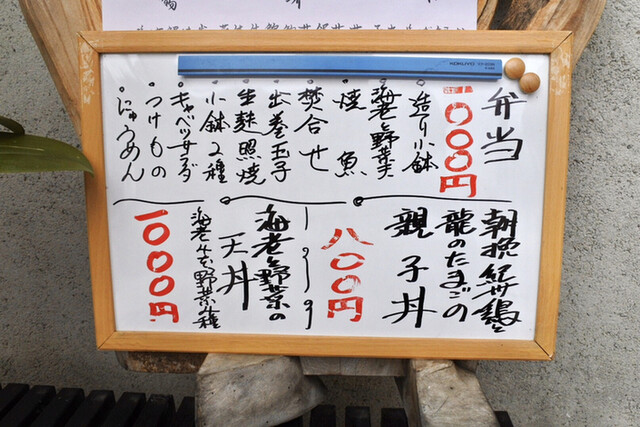 弁当
一〇〇〇円
造り小鉢
海老と野菜天
焼魚
焚合せ
出巻玉子
生麩照焼
小鉢2種
キャベツサラダ
つけもの
にゅうめん
朝挽紀州鶏と
龍のたまごの
親子丼
八〇〇円
海老と野菜の
天丼
海老2本野菜4種
一〇〇〇円